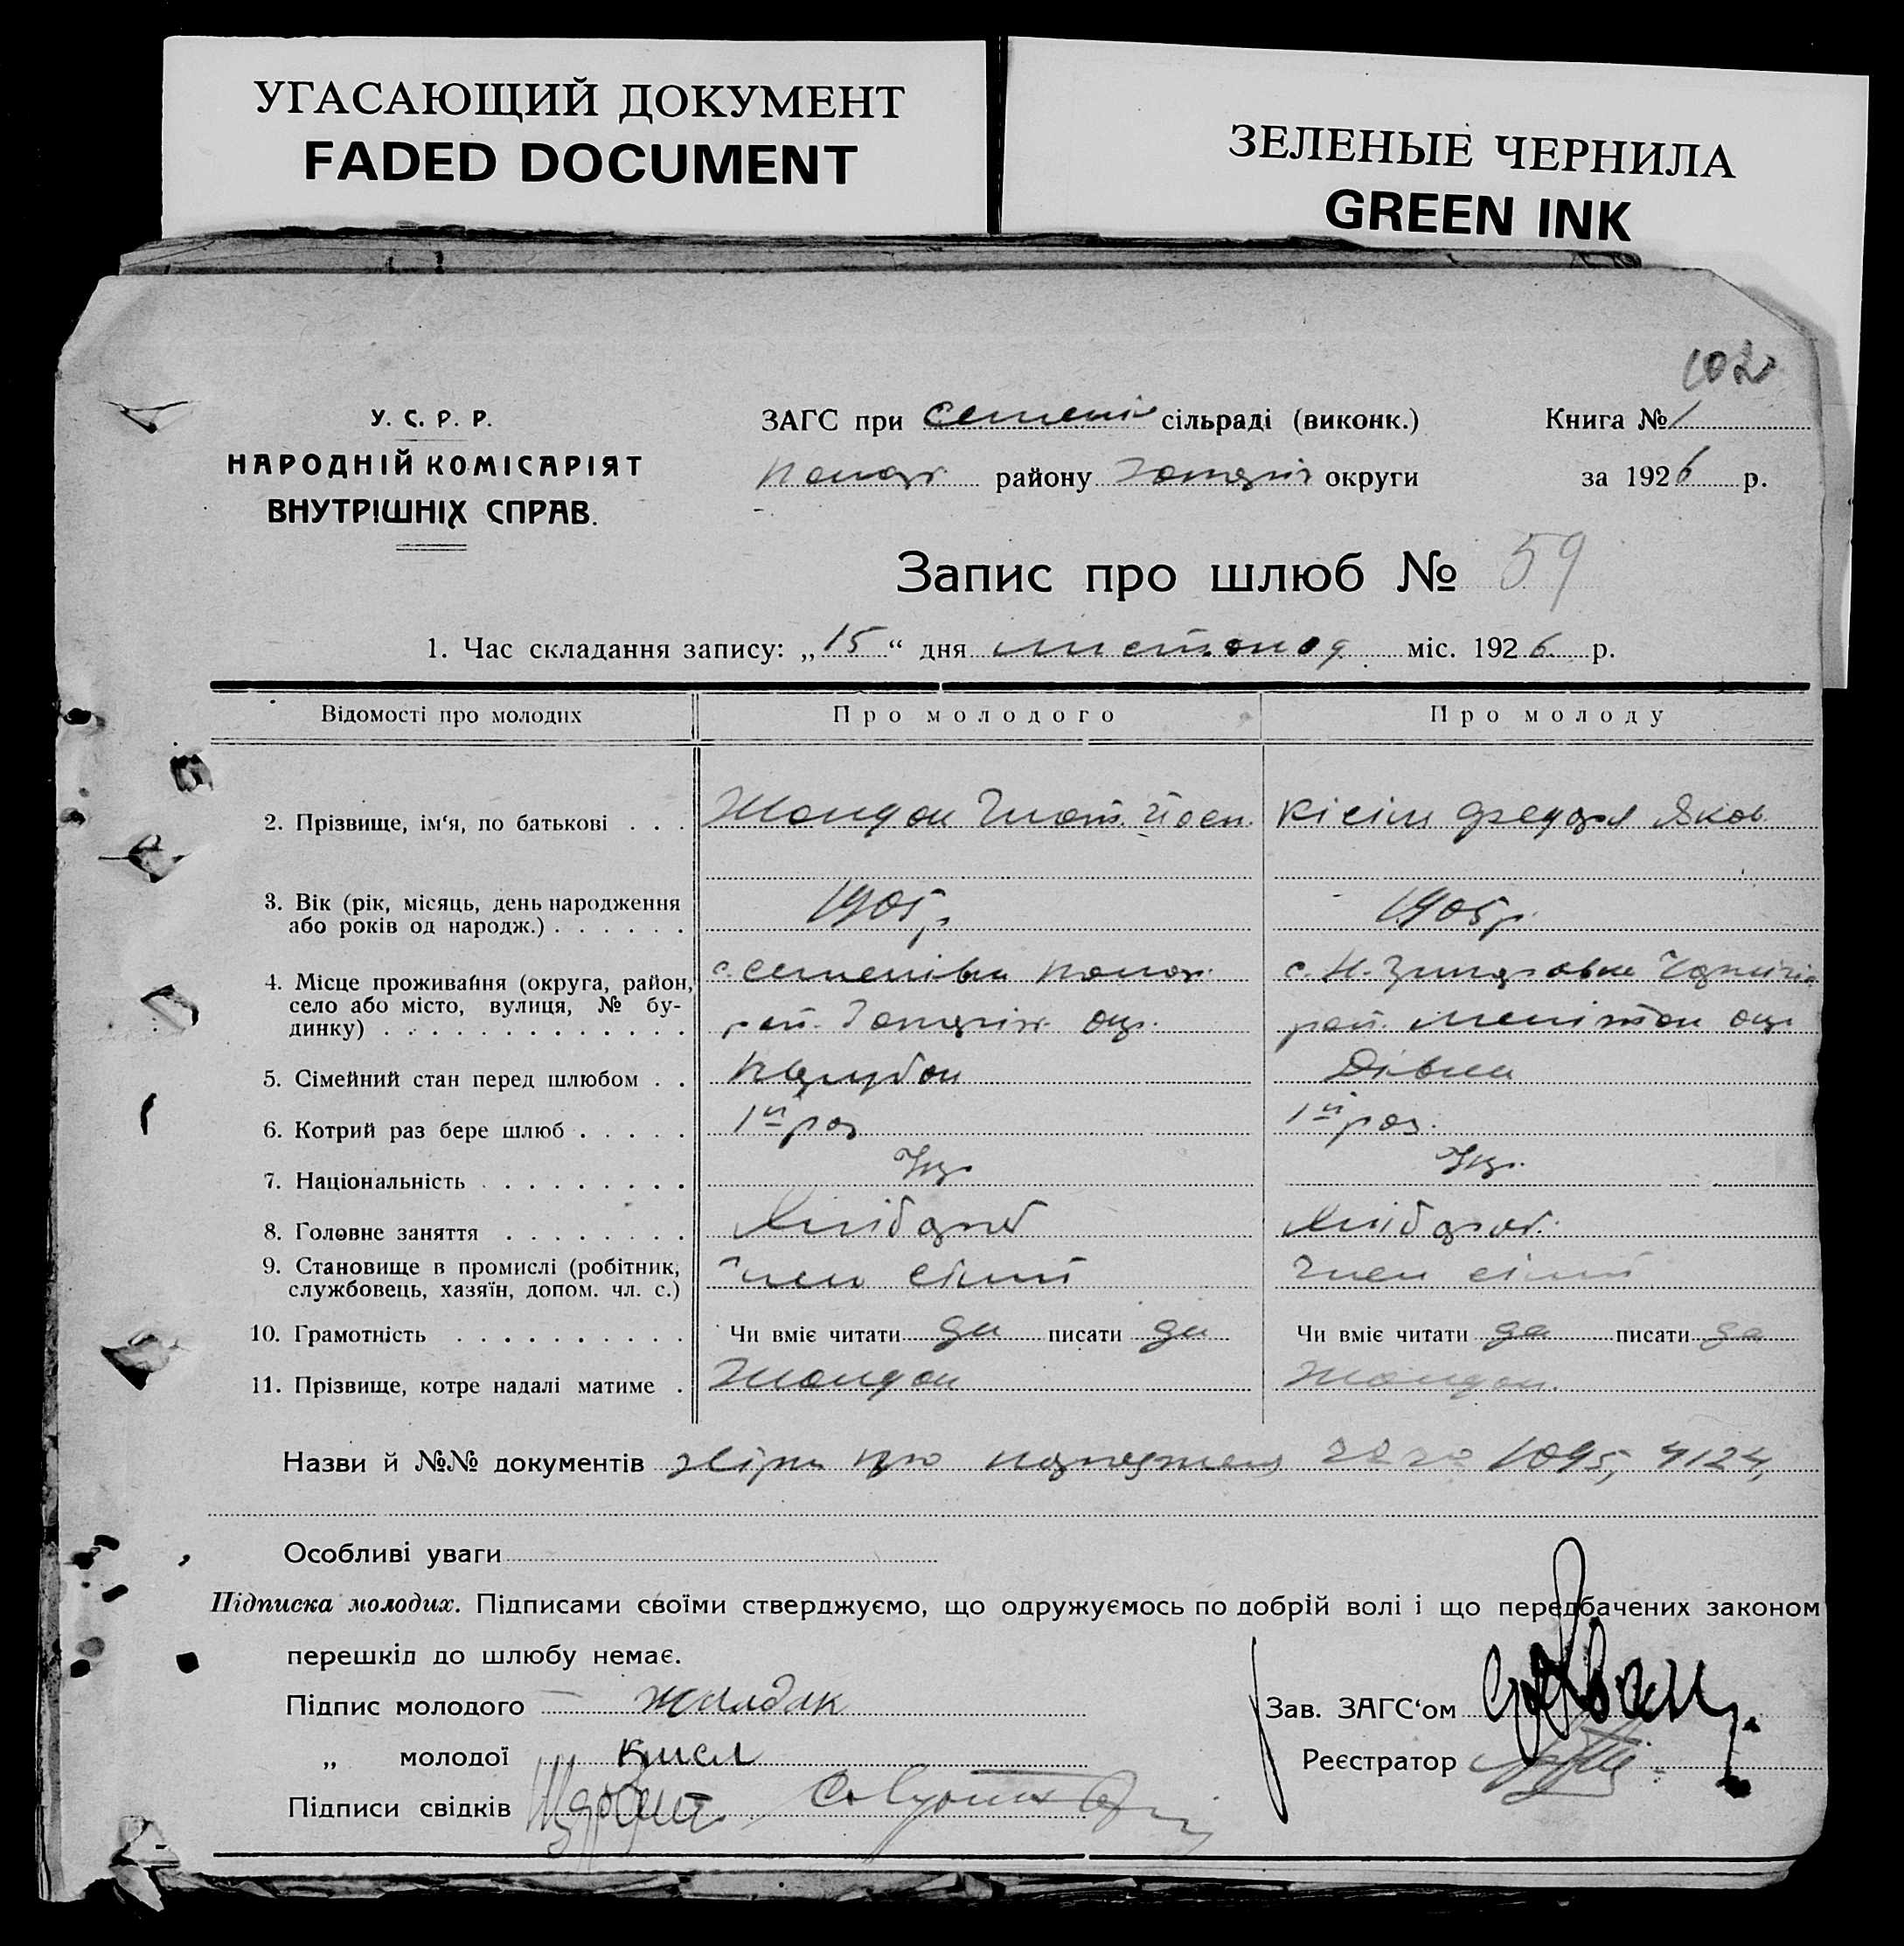 УГАСАЮЩИЙ ДОКУМЕНТ
FADED DOCUMENT
ЗЕЛЕНЫЕ ЧЕРНИЛА
GREEN INK
102
У. С. Р. Р.
НАРОДНІЙ КОМІСАРІЯТ
ВНУТРІШНІХ СПРАВ.
ЗАГС при Семенів сільраді (виконк.)
району округи
Книга № 1
за 1926 р.
Запис про шлюб № 59
1. Час складання запису: „15“ дня листопад міс. 1926 р.
Відомості про молодих
Про молодого
Про молоду
2. Прізвище, ім‘я, по батькові . . .
Жолдак Гнат Йосп.
Кісіль Федора Яков.
3. Вік (рік, місяць, день народження
або років од народж.) . . . . . .
1905 р.
1905 р.
4. Місце проживання (округа, район,
село або місто, вулиця, № бу-
динку) . . . . . . . . . . . . .
с. Семенівка
рай. окр.
с. Н.
рай. окр.
5. Сімейний стан перед шлюбом . .
Парубок
Дівка
6. Котрий раз бере шлюб . . . . .
1й раз
1й раз.
7. Національність . . . . . . . . .
Укр.
Укр.
8. Головне заняття . . . . . . . .
Хлібороб
Хлібороб.
9. Становище в промислі (робітник,
службовець, хазяїн, допом. чл. с.)
член сімї
член сімї
10. Грамотність . . . . . . . . . .
Чи вміє читати да писати да
Чи вміє читати да писати да
11. Прізвище, котре надалі матиме .
Жолдак
Жолдак.
Назви й №№ документів про народження 1095, 4124,
Особливі уваги
Підписка молодих. Підписами своїми стверджуємо, що одружуємось по добрій волі і що передбачених законом
перешкід до шлюбу немає.
Підпис молодого Жолдак
„ молодої Кисіл
Підписи свідків
Зав. ЗАГС‘ом
Реєстратор